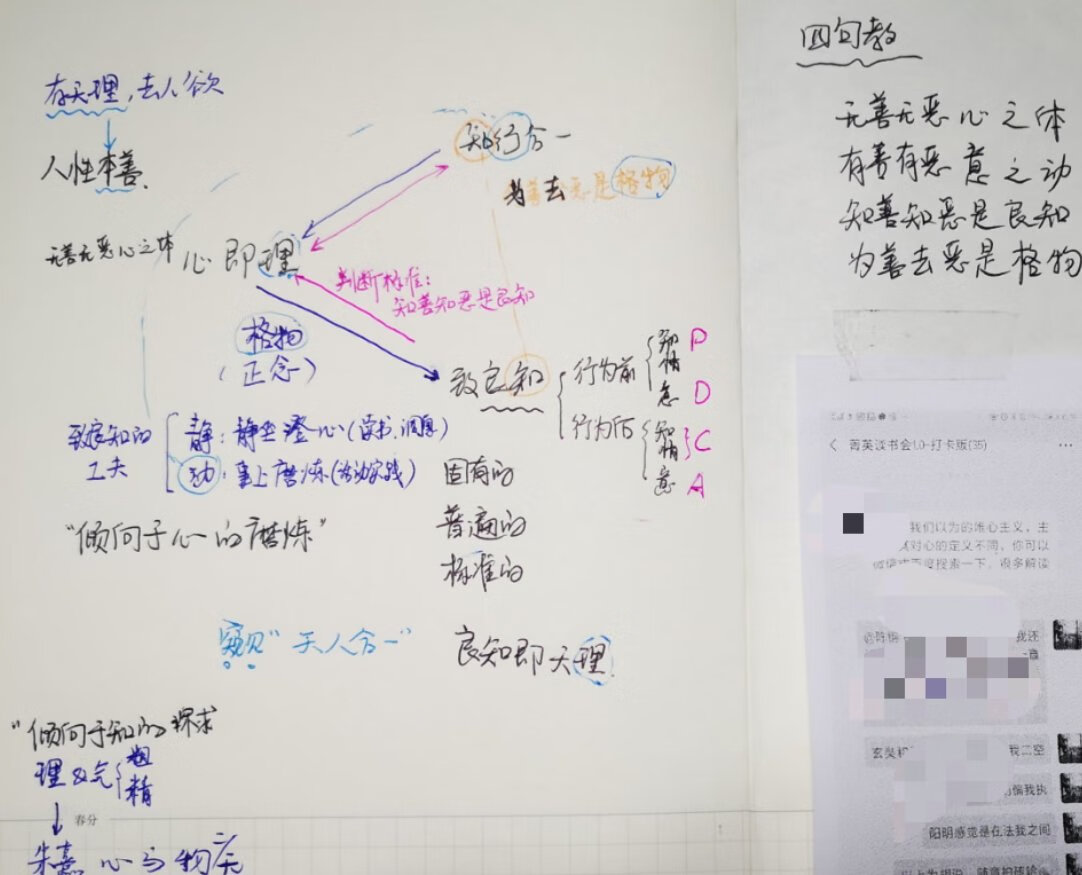 存天理,去人欲
人性本善.
知行合一
为善去恶是格物
无善无恶心之体 心即理
判断标准:
知善知恶是良知
格物
(正念)
致良知
行为前
知
情
意
P
D
行为后
知
情
意
C
A
致良知的
工夫
静:静坐澄心(读书.调息)
动:事上磨炼(活动实践)
固有的
普遍的
标准的
"倾向于心的磨炼"
窥见"天人合一"
良知即天理.
"倾向于知的探求
理&气
粗
精
春分
朱熹 心与物
四句教
无善无恶心之体
有善有恶意之动
知善知恶是良知
为善去恶是格物
菁英读书会1.0-打卡版(35)
我们以为的唯心主义,主
对心的定义不同,你可以
百度搜索一下,很多解读
我还
玄奘
我二空
我执
阳明感觉是在法我之间